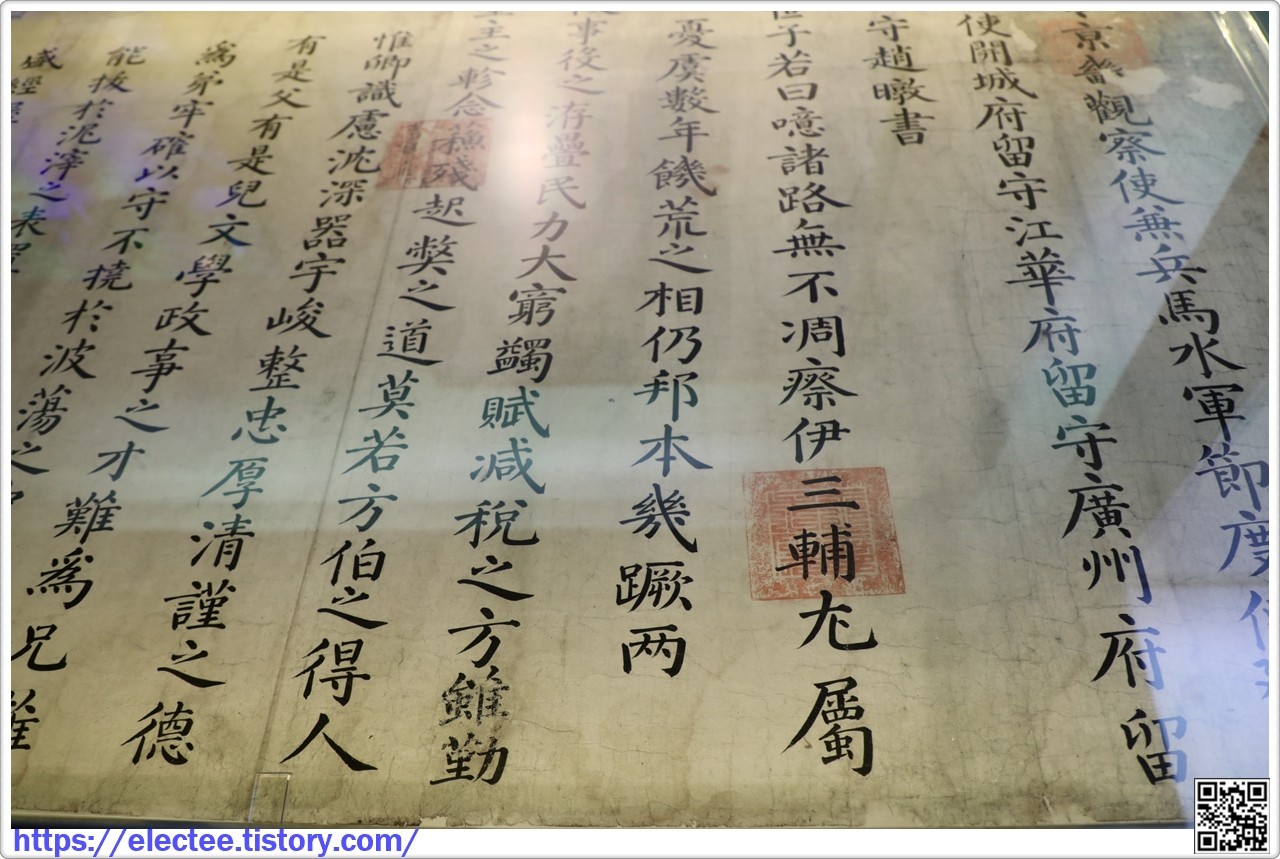 京畿觀察使兼兵馬水軍節度使
使開城府留守江華府留守廣州府留
守趙暾書
世子若曰噫諸路無不凋瘵伊三輔尤屬
憂虞數年饑荒之相仍邦本幾蹶两
事後之洊疊民力大窮蠲賦减稅之方雖勤
主之軫念穌殘起弊之道莫若方伯之得人
惟卿識慮沈深器宇峻整忠厚清謹之德
有是父有是兒文學政事之才難爲兄難
爲弟牢確以守不撓於波蕩之
能拔於泥滓之表
盛經
https://electee.tistory.com/